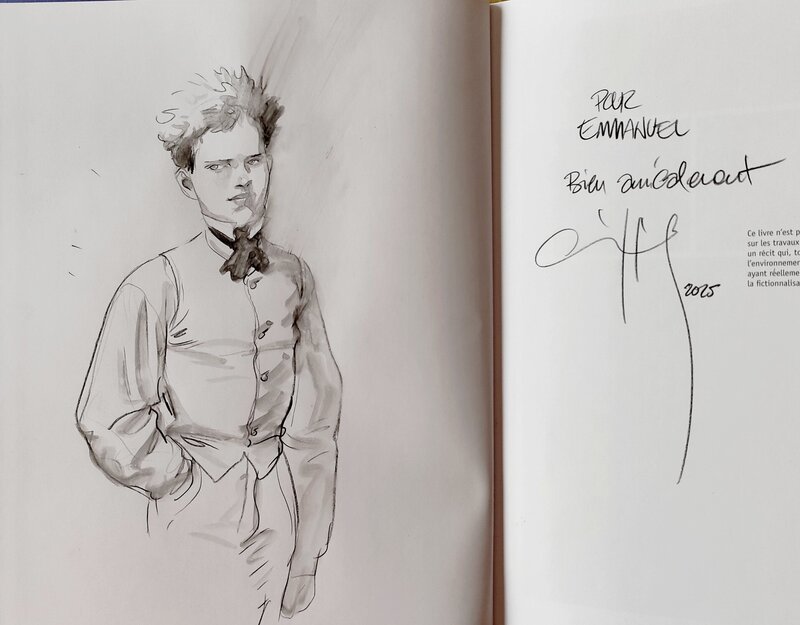 POUR
EMMANUEL
Bien amicalement
2025
Ce livre n'est p
sur les travaux
un récit qui, to
l'environnemen
ayant réelleme
la fictionnalisa